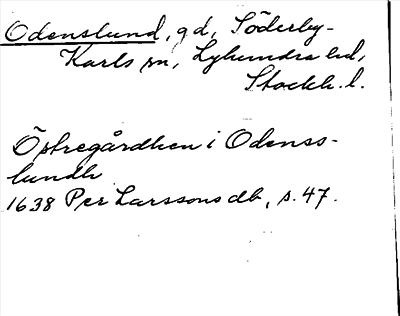 Odenslund, gd, Söderby-
Karls sn, Lyhundra hd,
Stockh. l.
Östregårdhen i Odenss-
lundh
1638 Per Larssons db, s. 47.